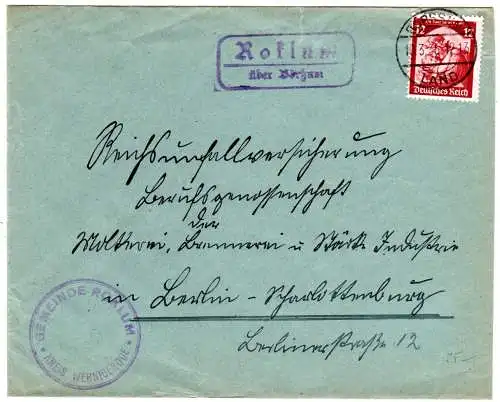 Roklum
über Börßum
12 12
Deutsches Reich
LAND
Reichsunfallversicherung
Berufsgenossenschaft
der
Molkerei, Brennerei u Stärke Industrie
in Berlin - Scharlottenburg
Berlinerstraße 12
GEMEINDE ROKLUM
* KREIS WERNIGERODE *